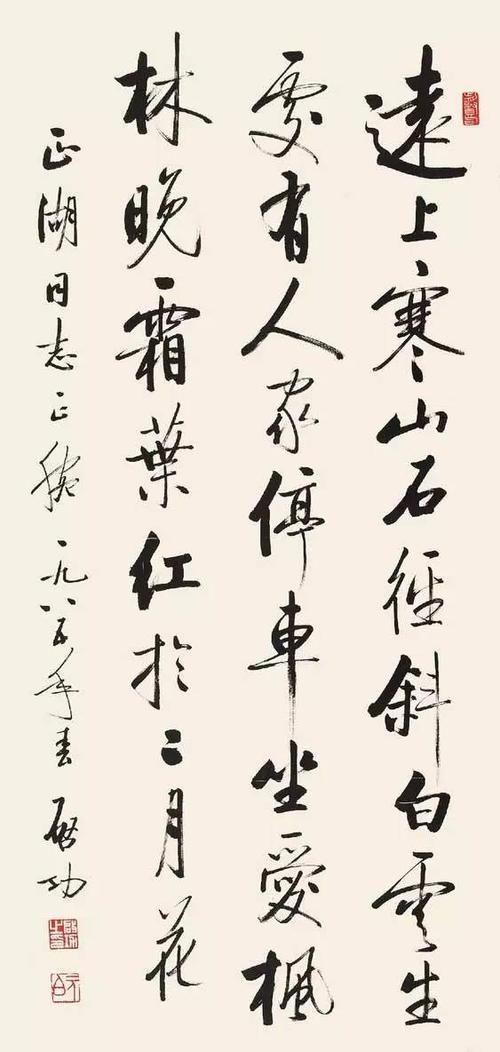 遠上寒山石徑斜白雲生
處有人家停車坐愛楓
林晚霜葉紅於二月花
正湖同志正腕一九八五年春啟功